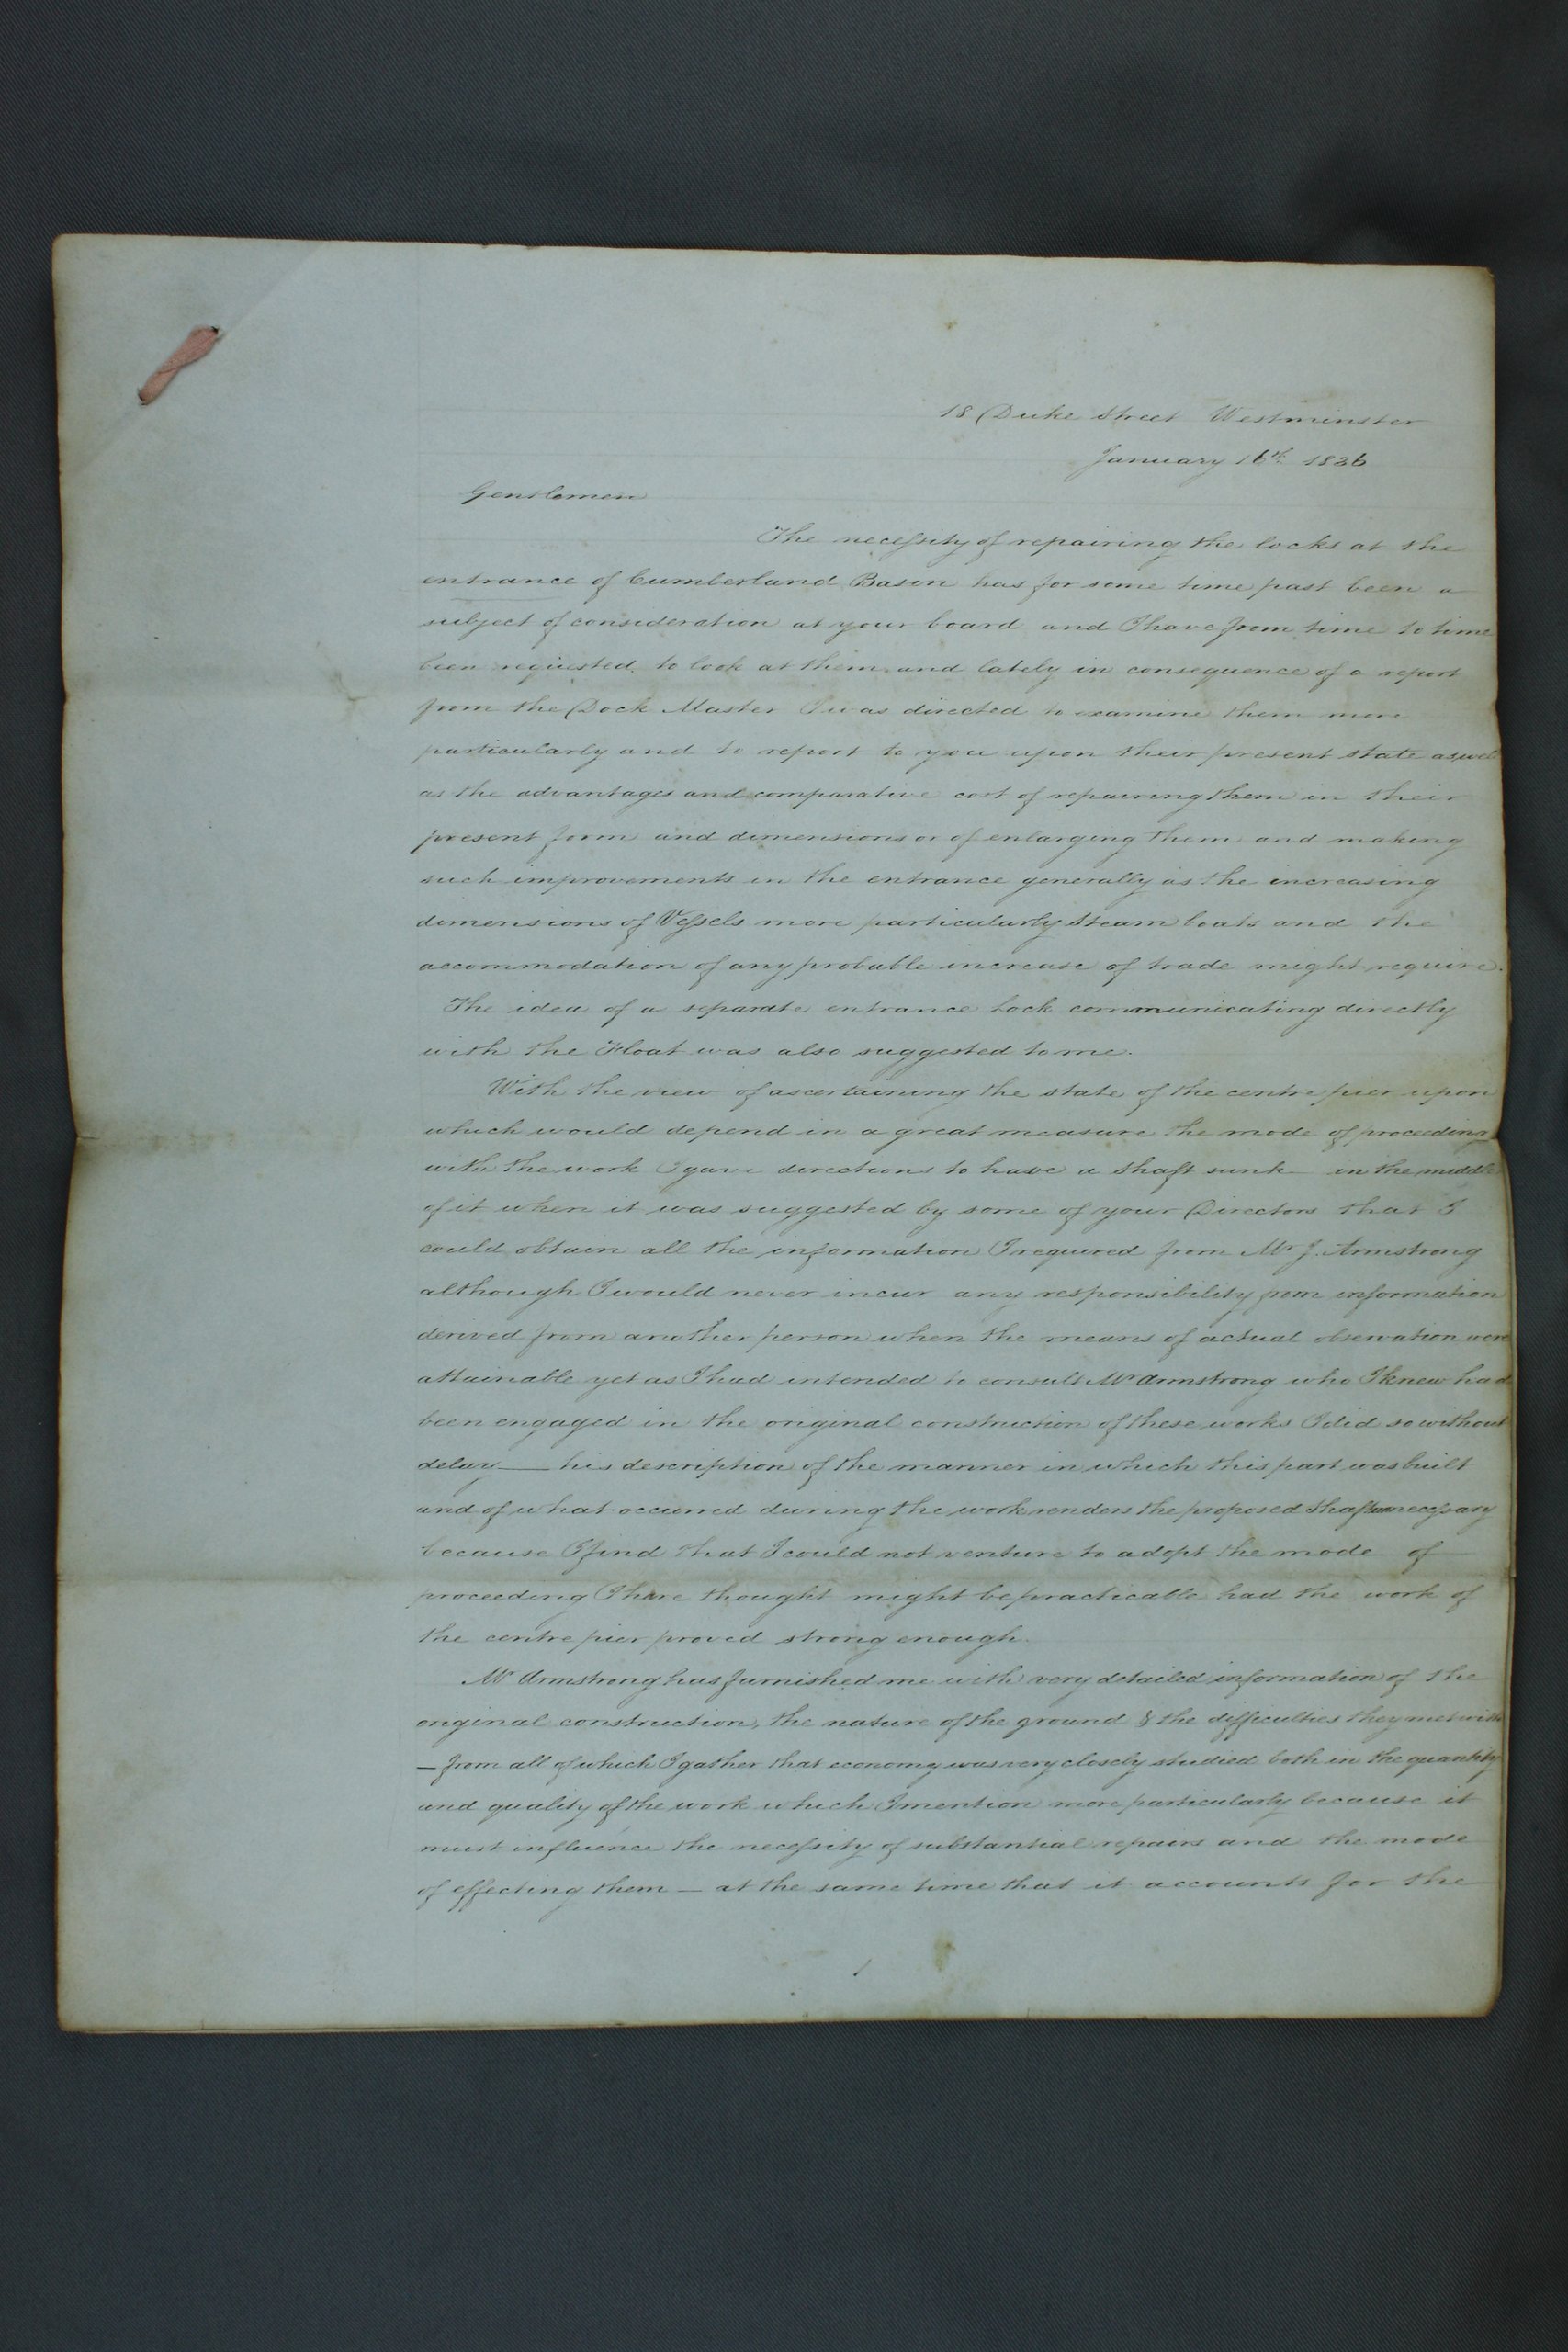 18 Duke Street Westminster
January 16th 1836
Gentlemen
The necessity of repairing the locks at the
entrance of Cumberland Basin has for some time past been a
subject of consideration at your board and I have from time to time
been requested to look at them and lately in consequence of a report
from the Dock Master I was directed to examine them more
particularly and to report to you upon their present state as well
as the advantages and comparative cost of repairing them in their
present form and dimensions or of enlarging them and making
such improvements in the entrance generally as the increasing
dimensions of Vessels more particularly Steam boats and the
accommodation of any probable increase of trade might require.
The idea of a separate entrance Lock communicating directly
with the Float was also suggested to me.
With the view of ascertaining the state of the centre pier upon
which would depend in a great measure the mode of proceeding
with the work I gave directions to have a shaft sunk in the middle
of it when it was suggested by some of your Directors that I
could obtain all the information I required from Mr J. Armstrong
although I would never incur any responsibility from information
derived from another person when the means of actual observation were
attainable yet as I had intended to consult Mr Armstrong who I knew had
been engaged in the original construction of these works I did so without
delay — his description of the manner in which this part was built
and of what occurred during the work renders the proposed Shaft unnecessary
because I find that I could not venture to adopt the mode of
proceeding I have thought might be practicable had the work of
the centre pier proved strong enough.
Mr Armstrong has furnished me with very detailed information of the
original construction, the nature of the ground & the difficulties they met with
— from all of which I gather that economy was very closely studied both in the quantity
and quality of the work which I mention more particularly because it
must influence the necessity of substantial repairs and the mode
of effecting them — at the same time that it accounts for the
1